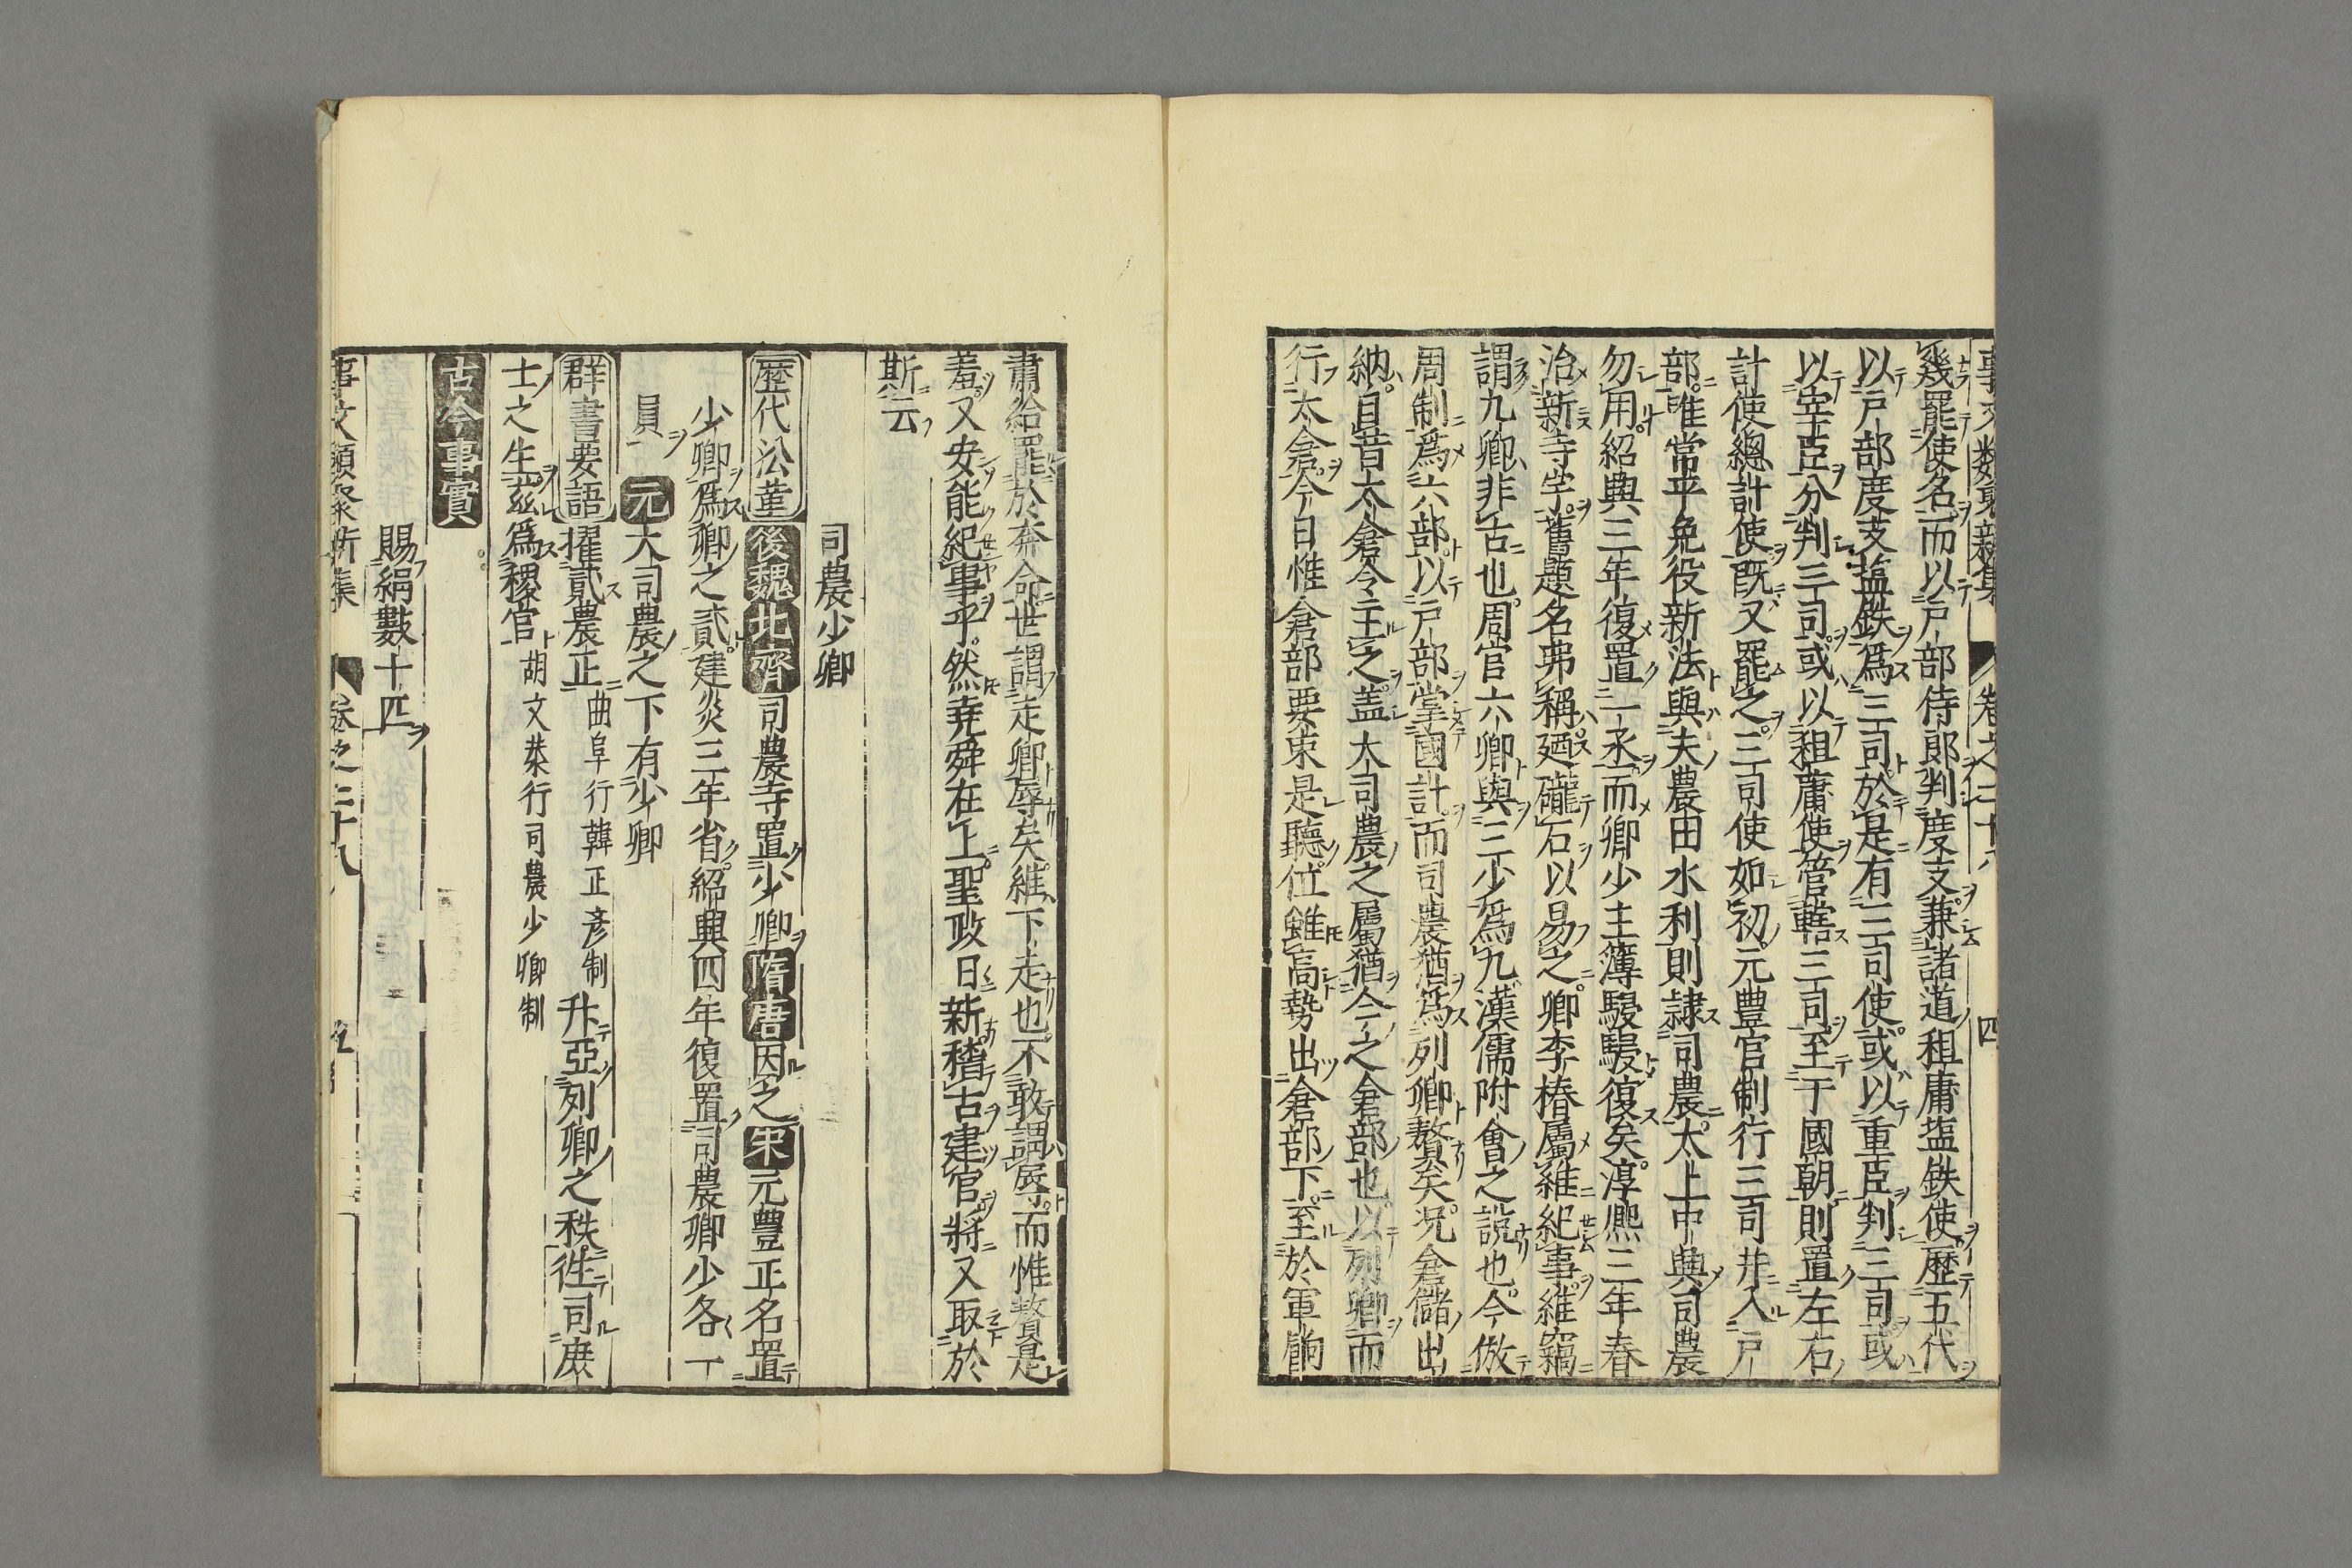 幾罷使名而以戸部侍郎判度支兼諸道租庸塩鉄使歷五代
以戸部度支塩鉄爲三司於是有三司使或以重臣判三司或
以宰臣分判三司或以租庸使管轄三司至于國朝則置左右
計使總計使既又罷之三司使如初元豊官制行三司并入戸
部唯常平免役新法與夫農田水利則隷司農太上中興司農
勿用紹興三年復置一丞而卿少主簿駸駸復矣淳熈三年春
治新寺字舊題名弗稱廼礲石以易之卿李椿屬維紀事維竊
謂九卿非古也周官六卿與三少爲九漢儒附會之說也今倣
周制爲六部以戸部掌國計而司農猶爲列卿贅矣况倉儲出
納自昔太倉令主之盖大司農之屬猶今之倉部也以列卿而
行太倉今日惟倉部要束是聽位雖高勢出倉部下至於軍餉
肅給罷於奔命世謂走卿辱矣維下走也不敢謂辱而惟贅是
羞又安能紀事乎然堯舜在上聖政日新稽古建官將又取於
斯云
司農少卿
歷代沿革 後魏北齊司農寺置少卿隋唐因之宋元豊正名置
少卿爲卿之貳建炎三年省紹興四年復置司農卿少各一
員 元大司農之下有少卿
群書要語 擢貳農正曲阜行韓正彦制 升亞列卿之秩徃司庾
士之生茲爲稷官胡文恭行司農少卿制
古今事實
賜絹數十匹
事文類聚新集 卷之二十八 五